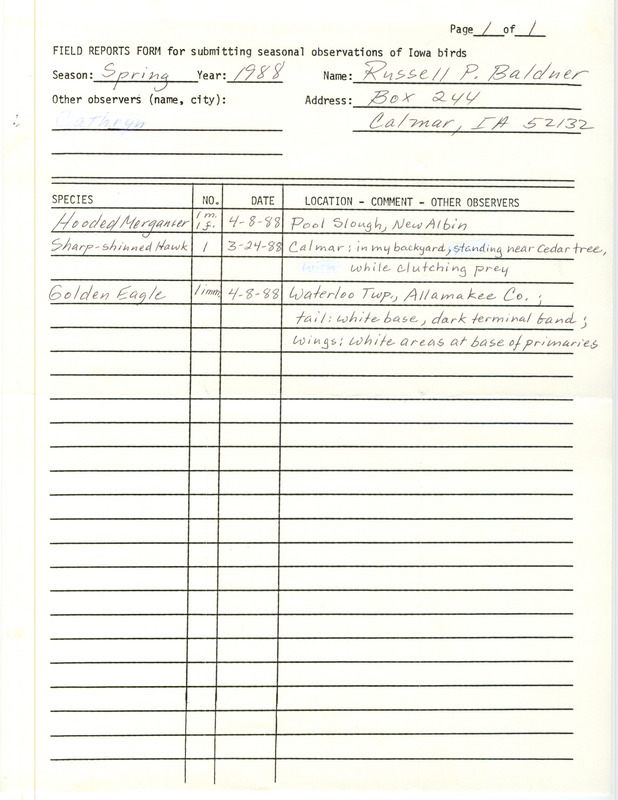 Page 1 of 1
FIELD REPORTS FORM for submitting seasonal observations of Iowa birds
Season: Spring Year: 1988 Name: Russell P. Baldner
Other observers (name, city): Address: Box 244
Cathryn Calmar, IA 52132
SPECIES NO. DATE LOCATION - COMMENT - OTHER OBSERVERS
Hooded Merganser 1 m. 1 f. 4-8-88 Pool Slough, New Albin
Sharp-shinned Hawk 1 3-24-88 Calmar: in my backyard, standing near Cedar tree,
while clutching prey
Golden Eagle 1 imm. 4-8-88 Waterloo Twp., Allamakee Co.;
tail: white base, dark terminal band;
wings: white areas at base of primaries